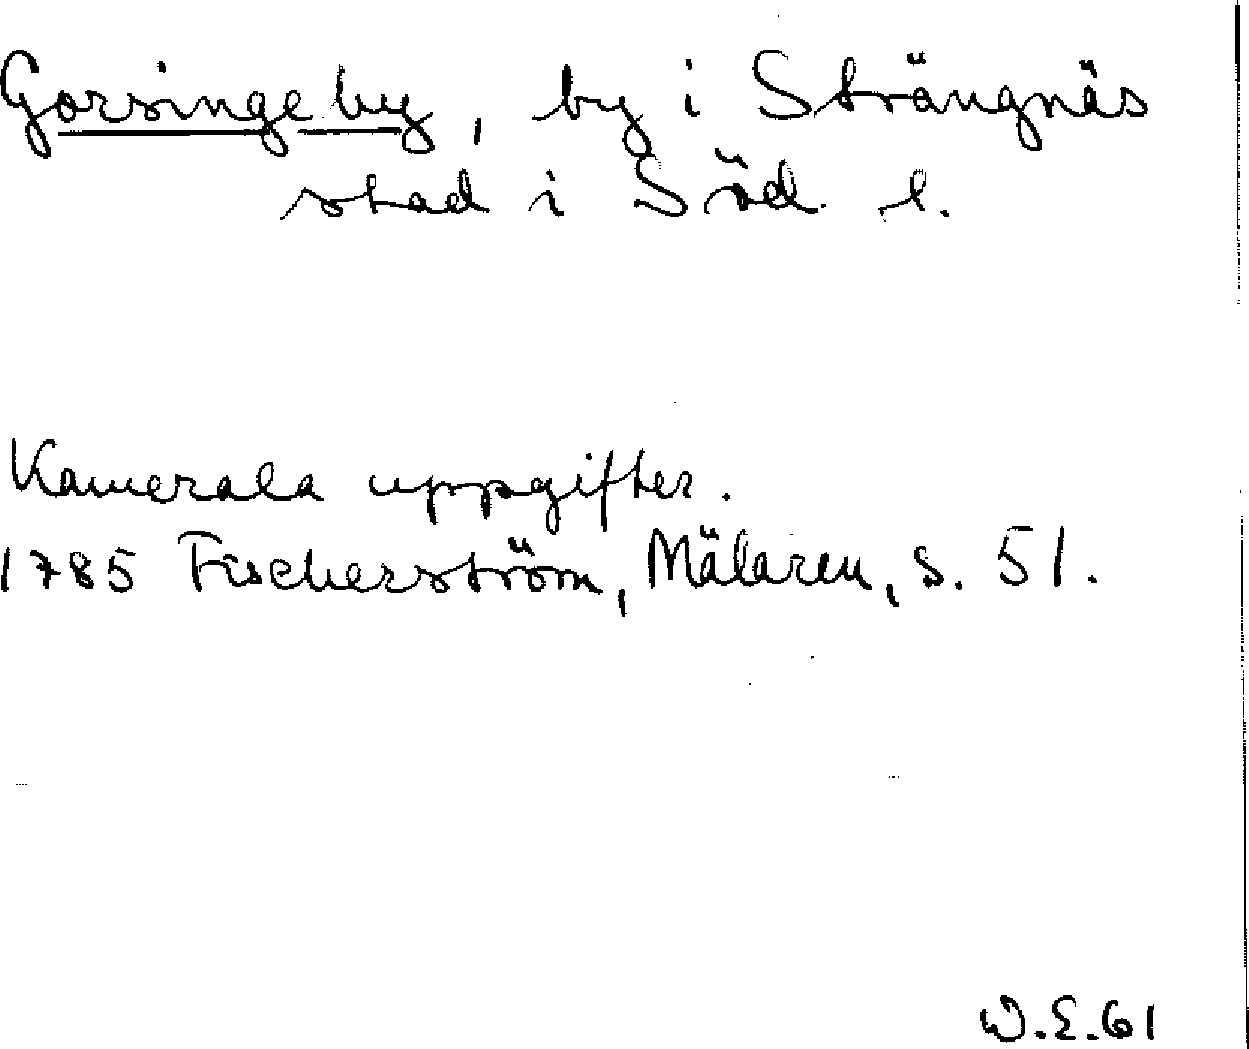 Gorsingeby, by i Strängnäs
stad i Söd. l.
Kamerala uppgifter.
1785 Fischerström, Mälaren, s. 51.
W.E.61